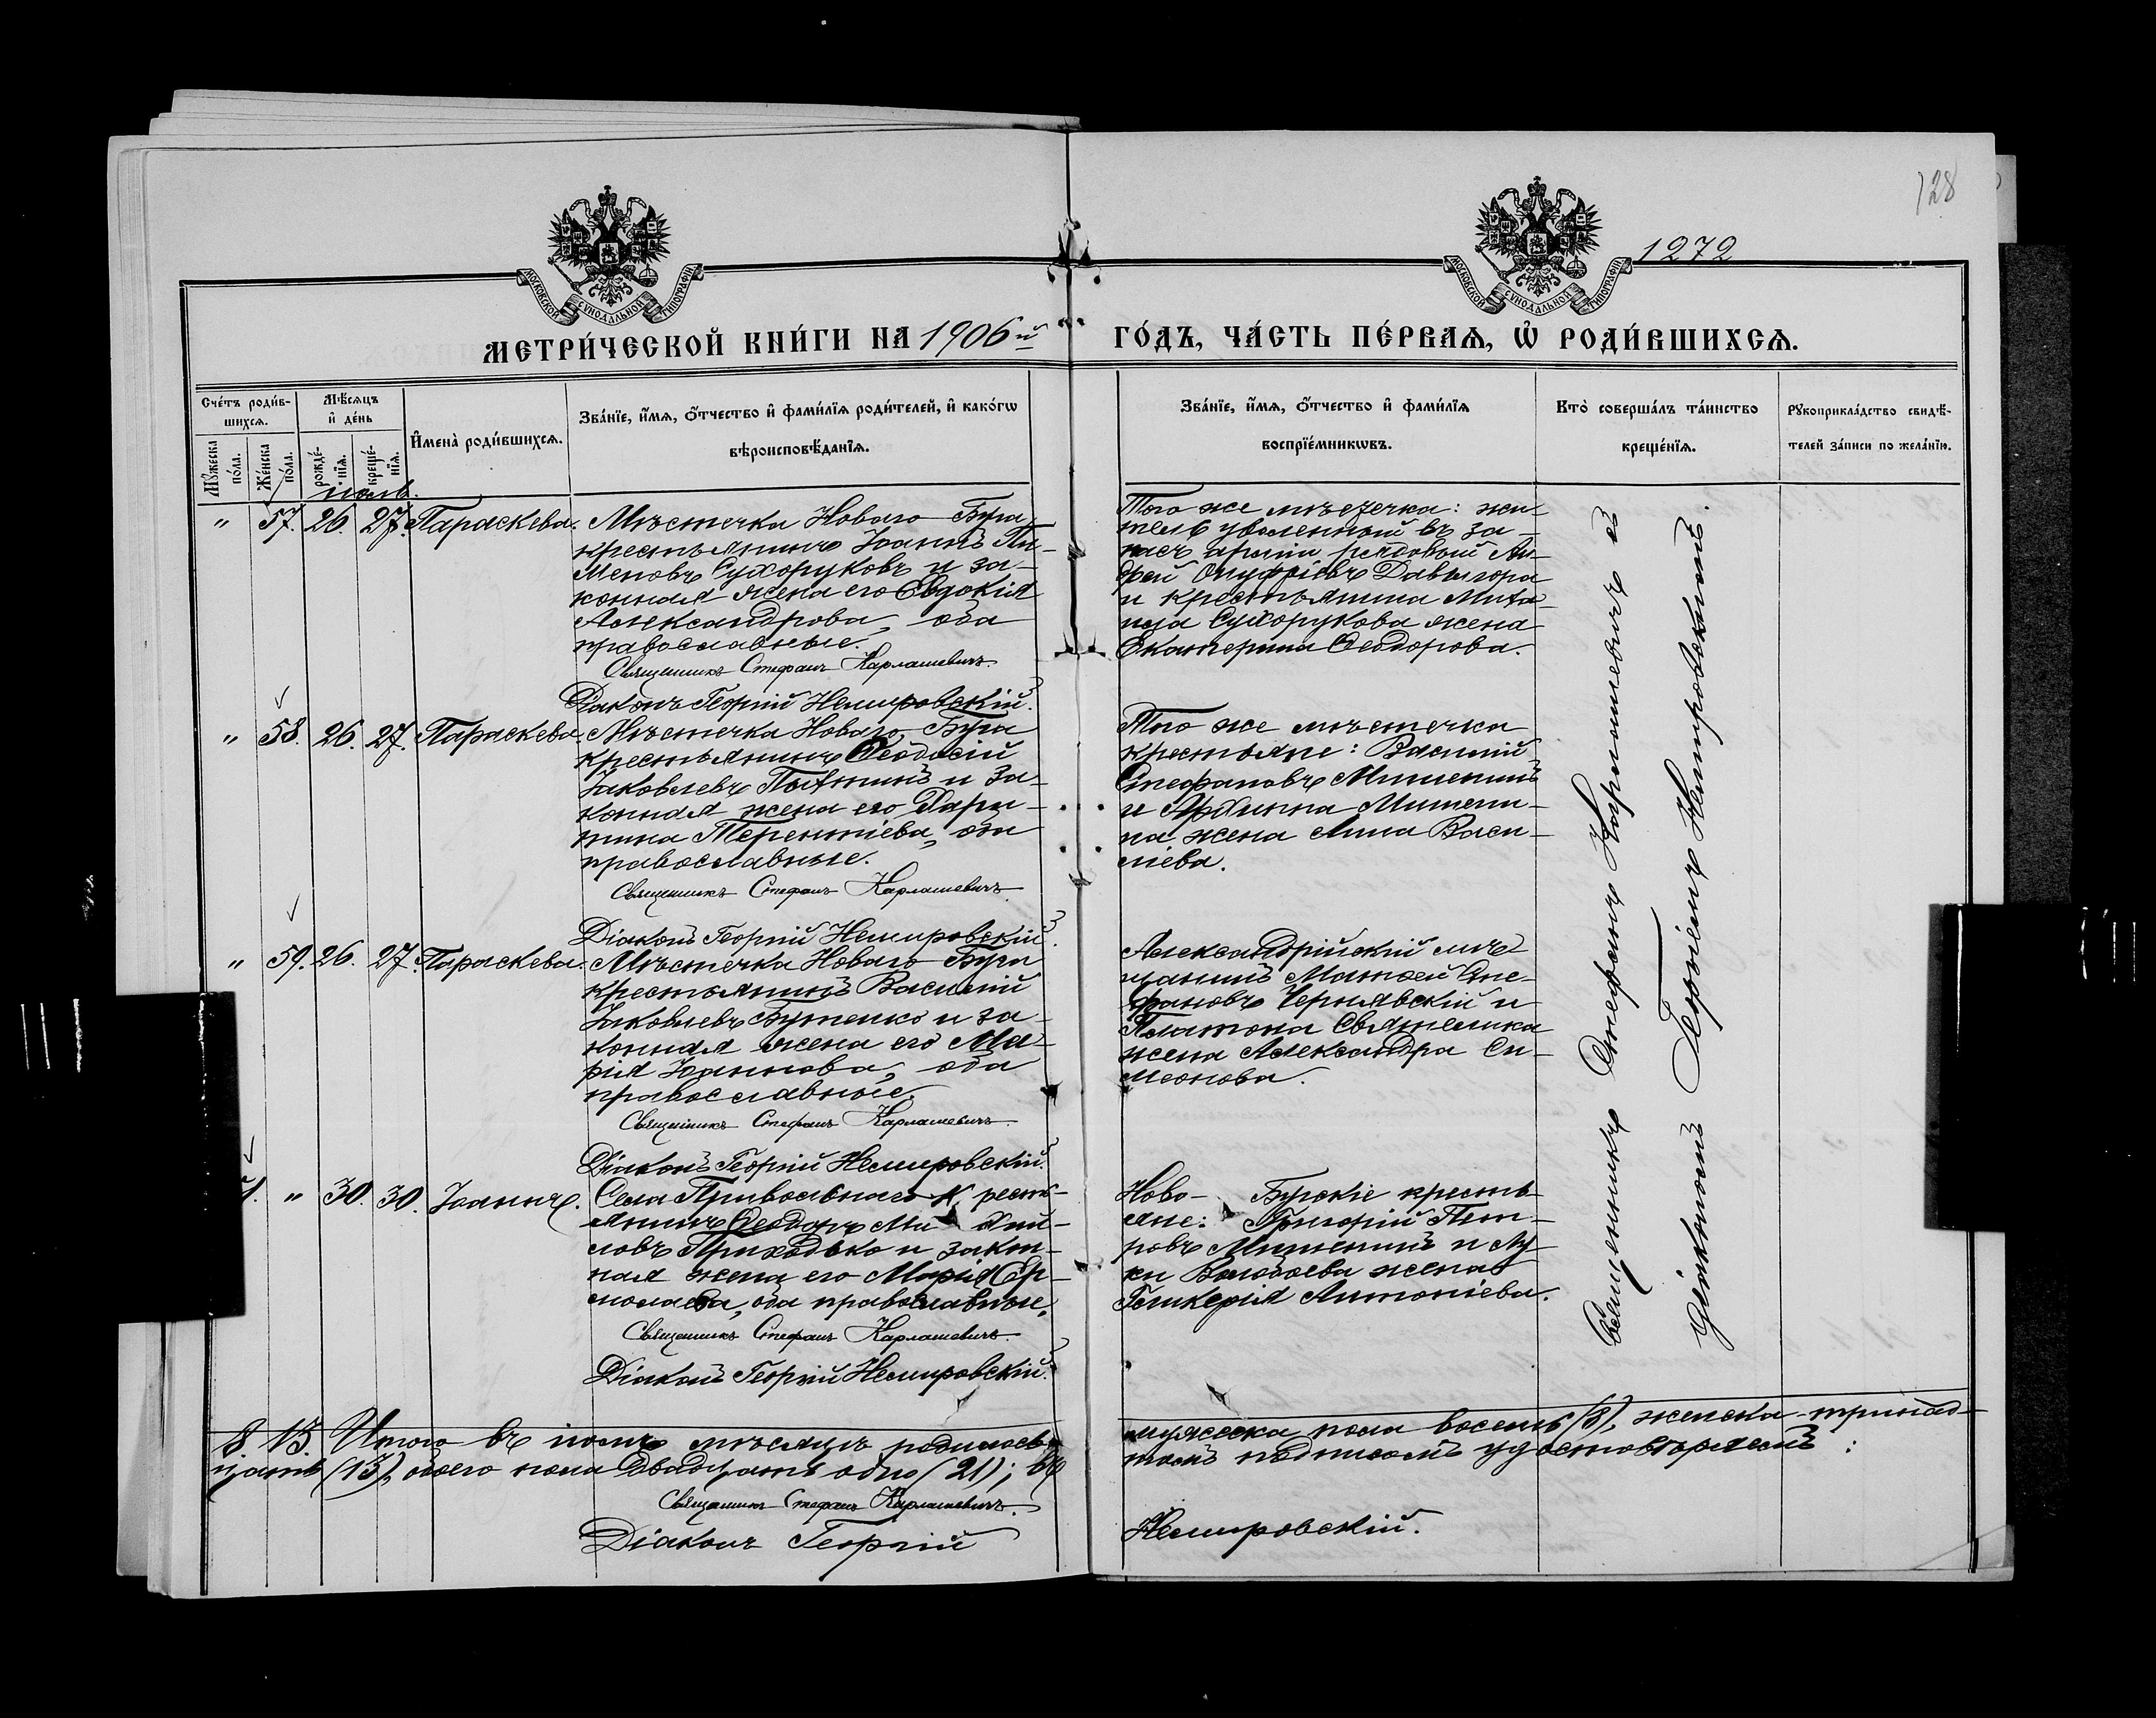 128
1272
МОСКОВСКОЙ СѴНОДАЛЬНОЙ ТИПОГРАФІИ
МОСКОВСКОЙ СѴНОДАЛЬНОЙ ТИПОГРАФІИ
МЕТРИ́ЧЕСКОЙ КНИ́ГИ НА 1906й ГО́ДЪ, ЧА́СТЬ ПЕ́РВАѦ, Ѡ҆ РОДИ́ВШИХСѦ.
Сче́тъ роди́в-
шихсѧ.
Мꙋ́жеска по́ла.
Же́нска по́ла.
Мѣ́сѧцъ
и҆ де́нь
рожде́-
нїѧ.
креще́-
нїѧ.
И҆мена̀ роди́вшихсѧ.
Зва́нїе, и҆́мѧ, ѻ҆́тчество и҆ фами́лїѧ роди́телей, и҆ како́гѡ
вѣроисповѣ́данїѧ.
Зва́нїе, и҆́мѧ, ѻ҆́тчество и҆ фами́лїѧ
воспрїе́мникѡвъ.
Кто̀ соверша́лъ та́инство
креще́нїѧ.
Рꙋкоприкла́дство свидѣ́-
телей за́писи по жела́нїю.
іюль.
" 57. 26. 27. Параскева.
Мѣстечка Новаго Буга
крестьянинъ Іоаннъ Пи-
меновъ Сухоруковъ и за-
конная жена его Евдокія
Александрова, оба
православные.
Священникъ Стефанъ Карлашевичъ.
Діаконъ Георгій Немировскій.
Того же мѣстечка: жи-
тель уволенный въ за-
пасъ арміи рядовой Ан-
дрей Онуфріевъ Давыгора
и крестьянина Миха-
ила Сухорукова жена
Екатерина Ѳеодорова.
" 58. 26. 27. Параскева.
Мѣстечка Новаго Буга
крестьянинъ Ѳеодосій
Іаковлевъ и за-
конная жена его Хари-
тина Терентіева, оба
православные.
Священникъ Стефанъ Карлашевичъ.
Діаконъ Георгій Немировскій.
Того же мѣстечка
крестьяне: Василій
Стефановъ Мишенинъ
и Мишени-
на жена Анна Васи-
ліева.
" 59. 26. 27. Параскева.
Мѣстечка Новаго Буга
крестьянинъ Василій
Іаковлевъ Бутенко и за-
конная жена его Ма-
рія Іоаннова, оба
православные.
Священникъ Стефанъ Карлашевичъ.
Діаконъ Георгій Немировскій.
Александрійскій мѣ-
щанинъ Матѳей Сте-
фановъ Чернявскій и
Платона
жена Александра Си-
меонова.
" 30. 30. Іоаннъ.
Села Привольнаго крест-
янинъ Ѳеодоръ Михаи-
ловъ Приходько и закон-
ная жена его Марія Ер-
молаева, оба православные.
Священникъ Стефанъ Карлашевичъ.
Діаконъ Георгій Немировскій.
Ново-Бугскіе кресть-
яне: Григорій Пет-
ровъ Мишенинъ и Лу-
ки жена
Гликерія Антоніева.
Священникъ Стефанъ Карлашевичъ съ
діакономъ Георгіемъ Немировскимъ.
8. 13. Итого въ іюлѣ мѣсяцѣ родилось мужеска пола восемь (8), женска тринад-
цать (13), обоего пола двадцать одно (21); въ томъ подписомъ удостовѣряемъ:
Священникъ Стефанъ Карлашевичъ.
Діаконъ Георгій Немировскій.